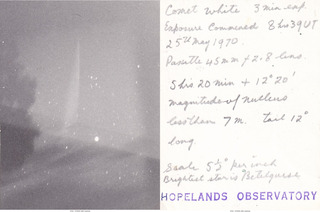 Comet White 3 min exp.
Exposure Commenced 8 hrs 39 UT
25th May 1970.
45mm f 2.8 lens.
5 hrs 20 min + 12° 20'
Magnitude of Nucleus
less than 7 m. Tail 12°
long.
Scale 5½° per inch
Brightest star is Betelgeuse
HOPELANDS OBSERVATORY